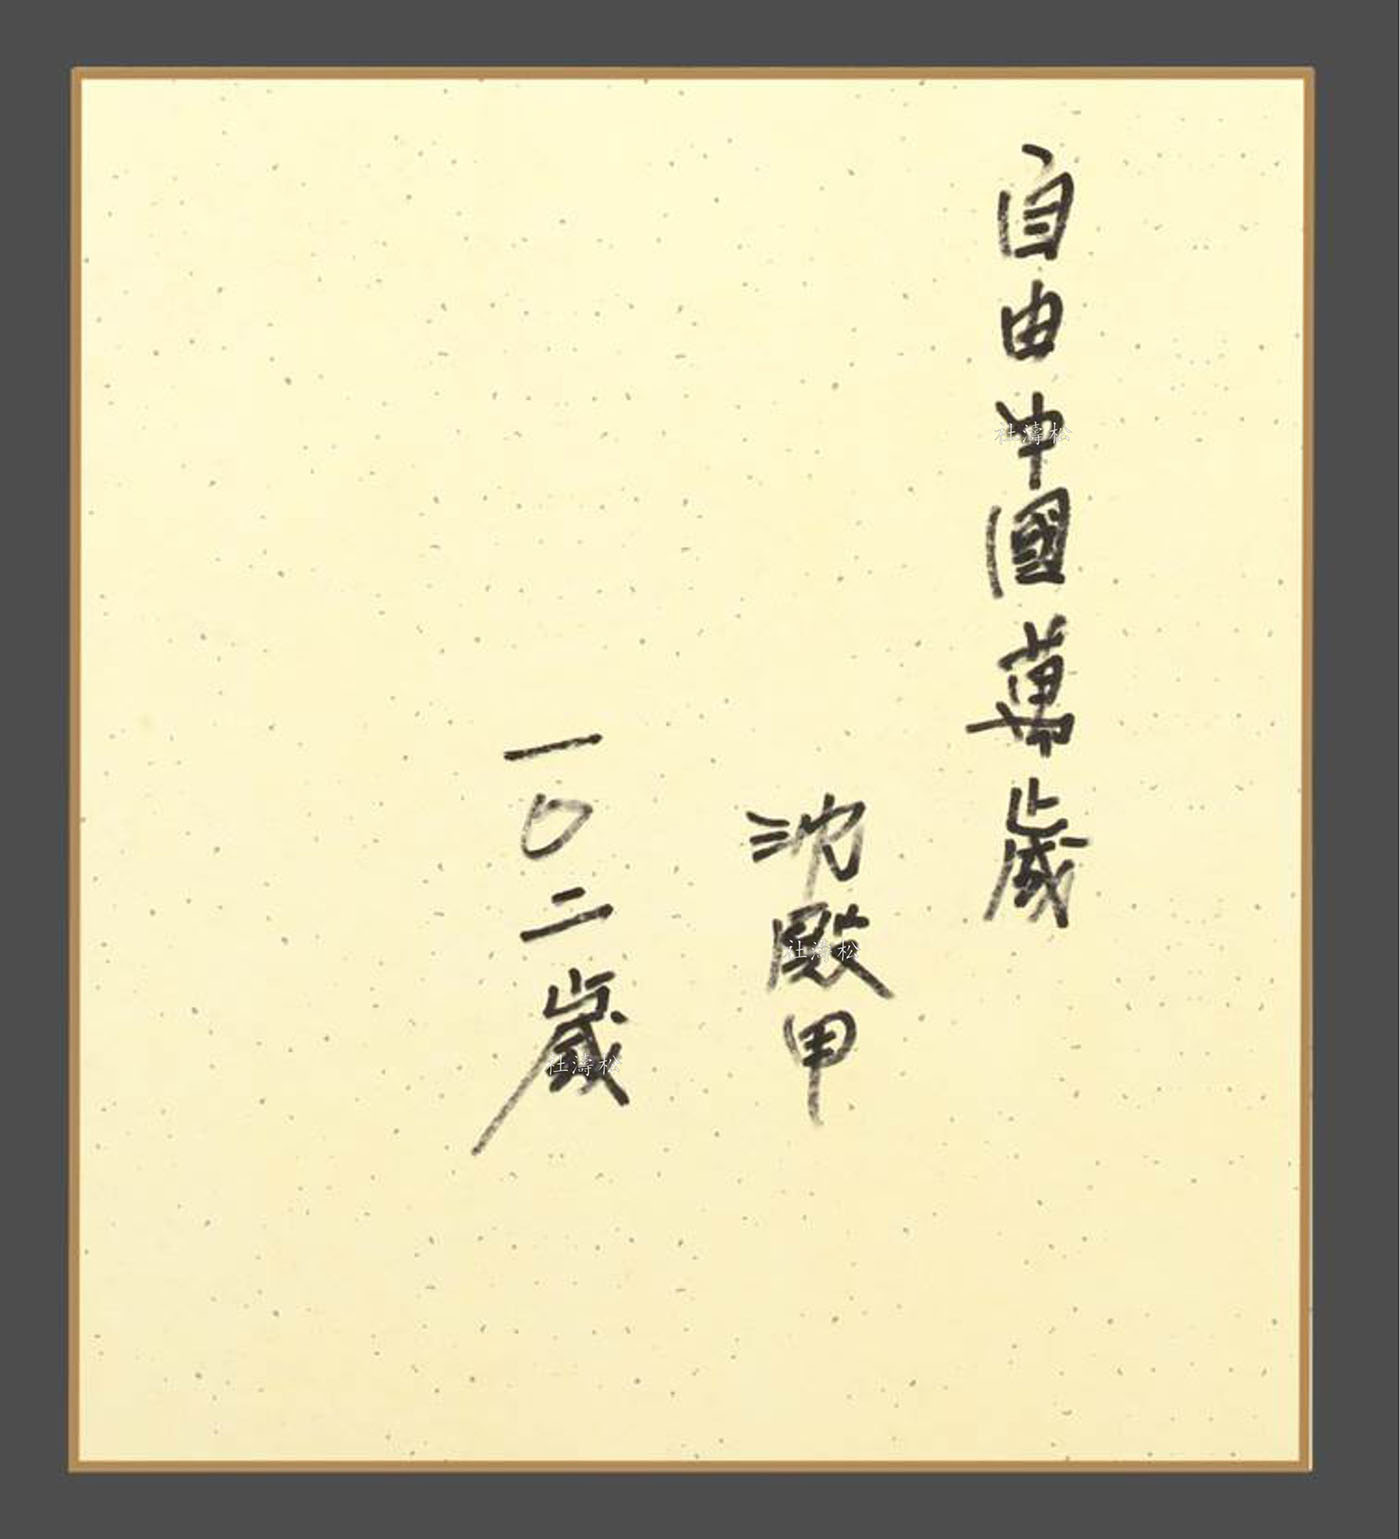 自由中國萬歲
沈殿甲
一〇二歲
杜濤松
杜濤松
杜濤松